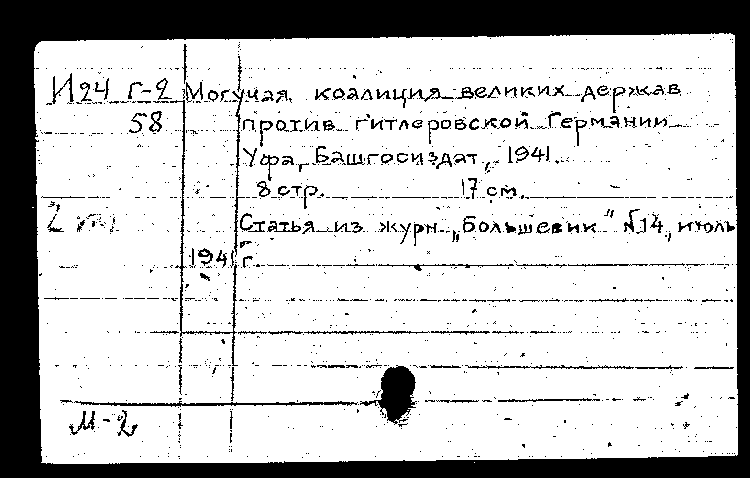 И24 Г-2 Могучая коалиция великих держав
58 против гитлеровской Германии
Уфа, Башгосиздат, 1941.
8 стр. 17 см.
Статья из журн „большевик" №14, июль
1941 г.
М-2